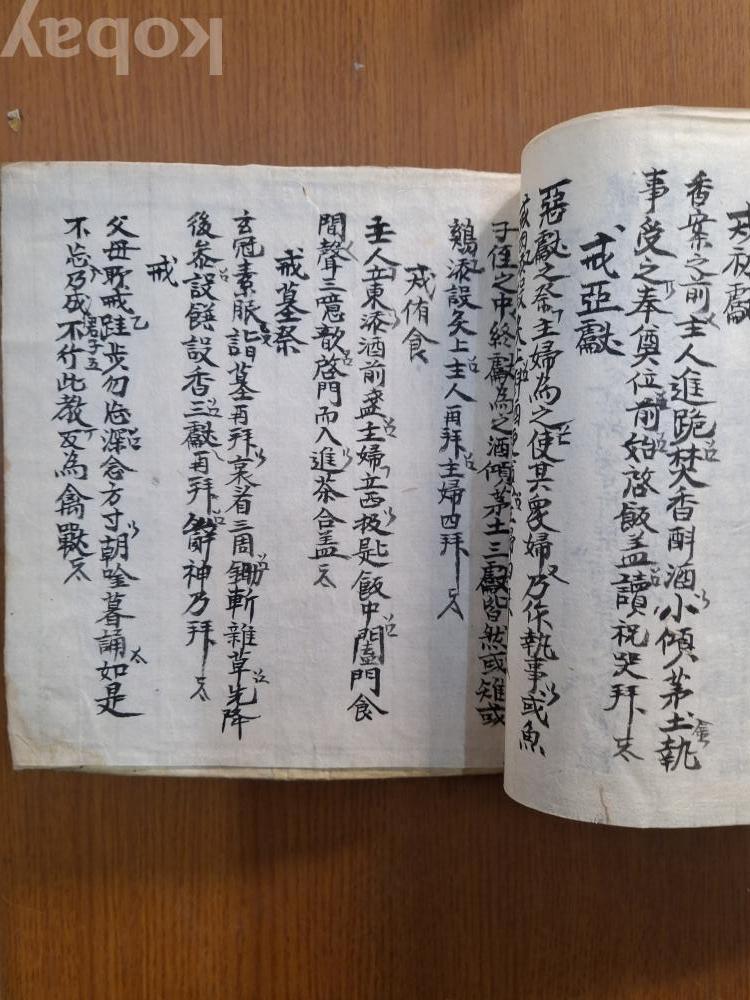 kobay
初獻
香案之前主人進跪焚香酹酒小傾茅土執
事受之奉奠位前始啓飯盖讀祝哭拜
戒亞獻
惡獻之祭主婦為之使其衆婦乃作執事或魚
子侄之中終獻為之酒傾茅土三獻皆然或雉或
鷄添設矣上主人再拜主婦四拜
戒侑食
主人立東添酒前盞主婦立西扱匙飯中闔門食
間聲三噫歆啓門而入進茶合盖
戒墓祭
玄冠素服詣墓再拜哀省三周鋤斬雜草先降
後叅設饌設香三獻再拜辭神乃拜
戒
父母耶戒跬步勿忘深念方寸朝唫暮誦如是
不忘乃成君子不行此教反為禽獸